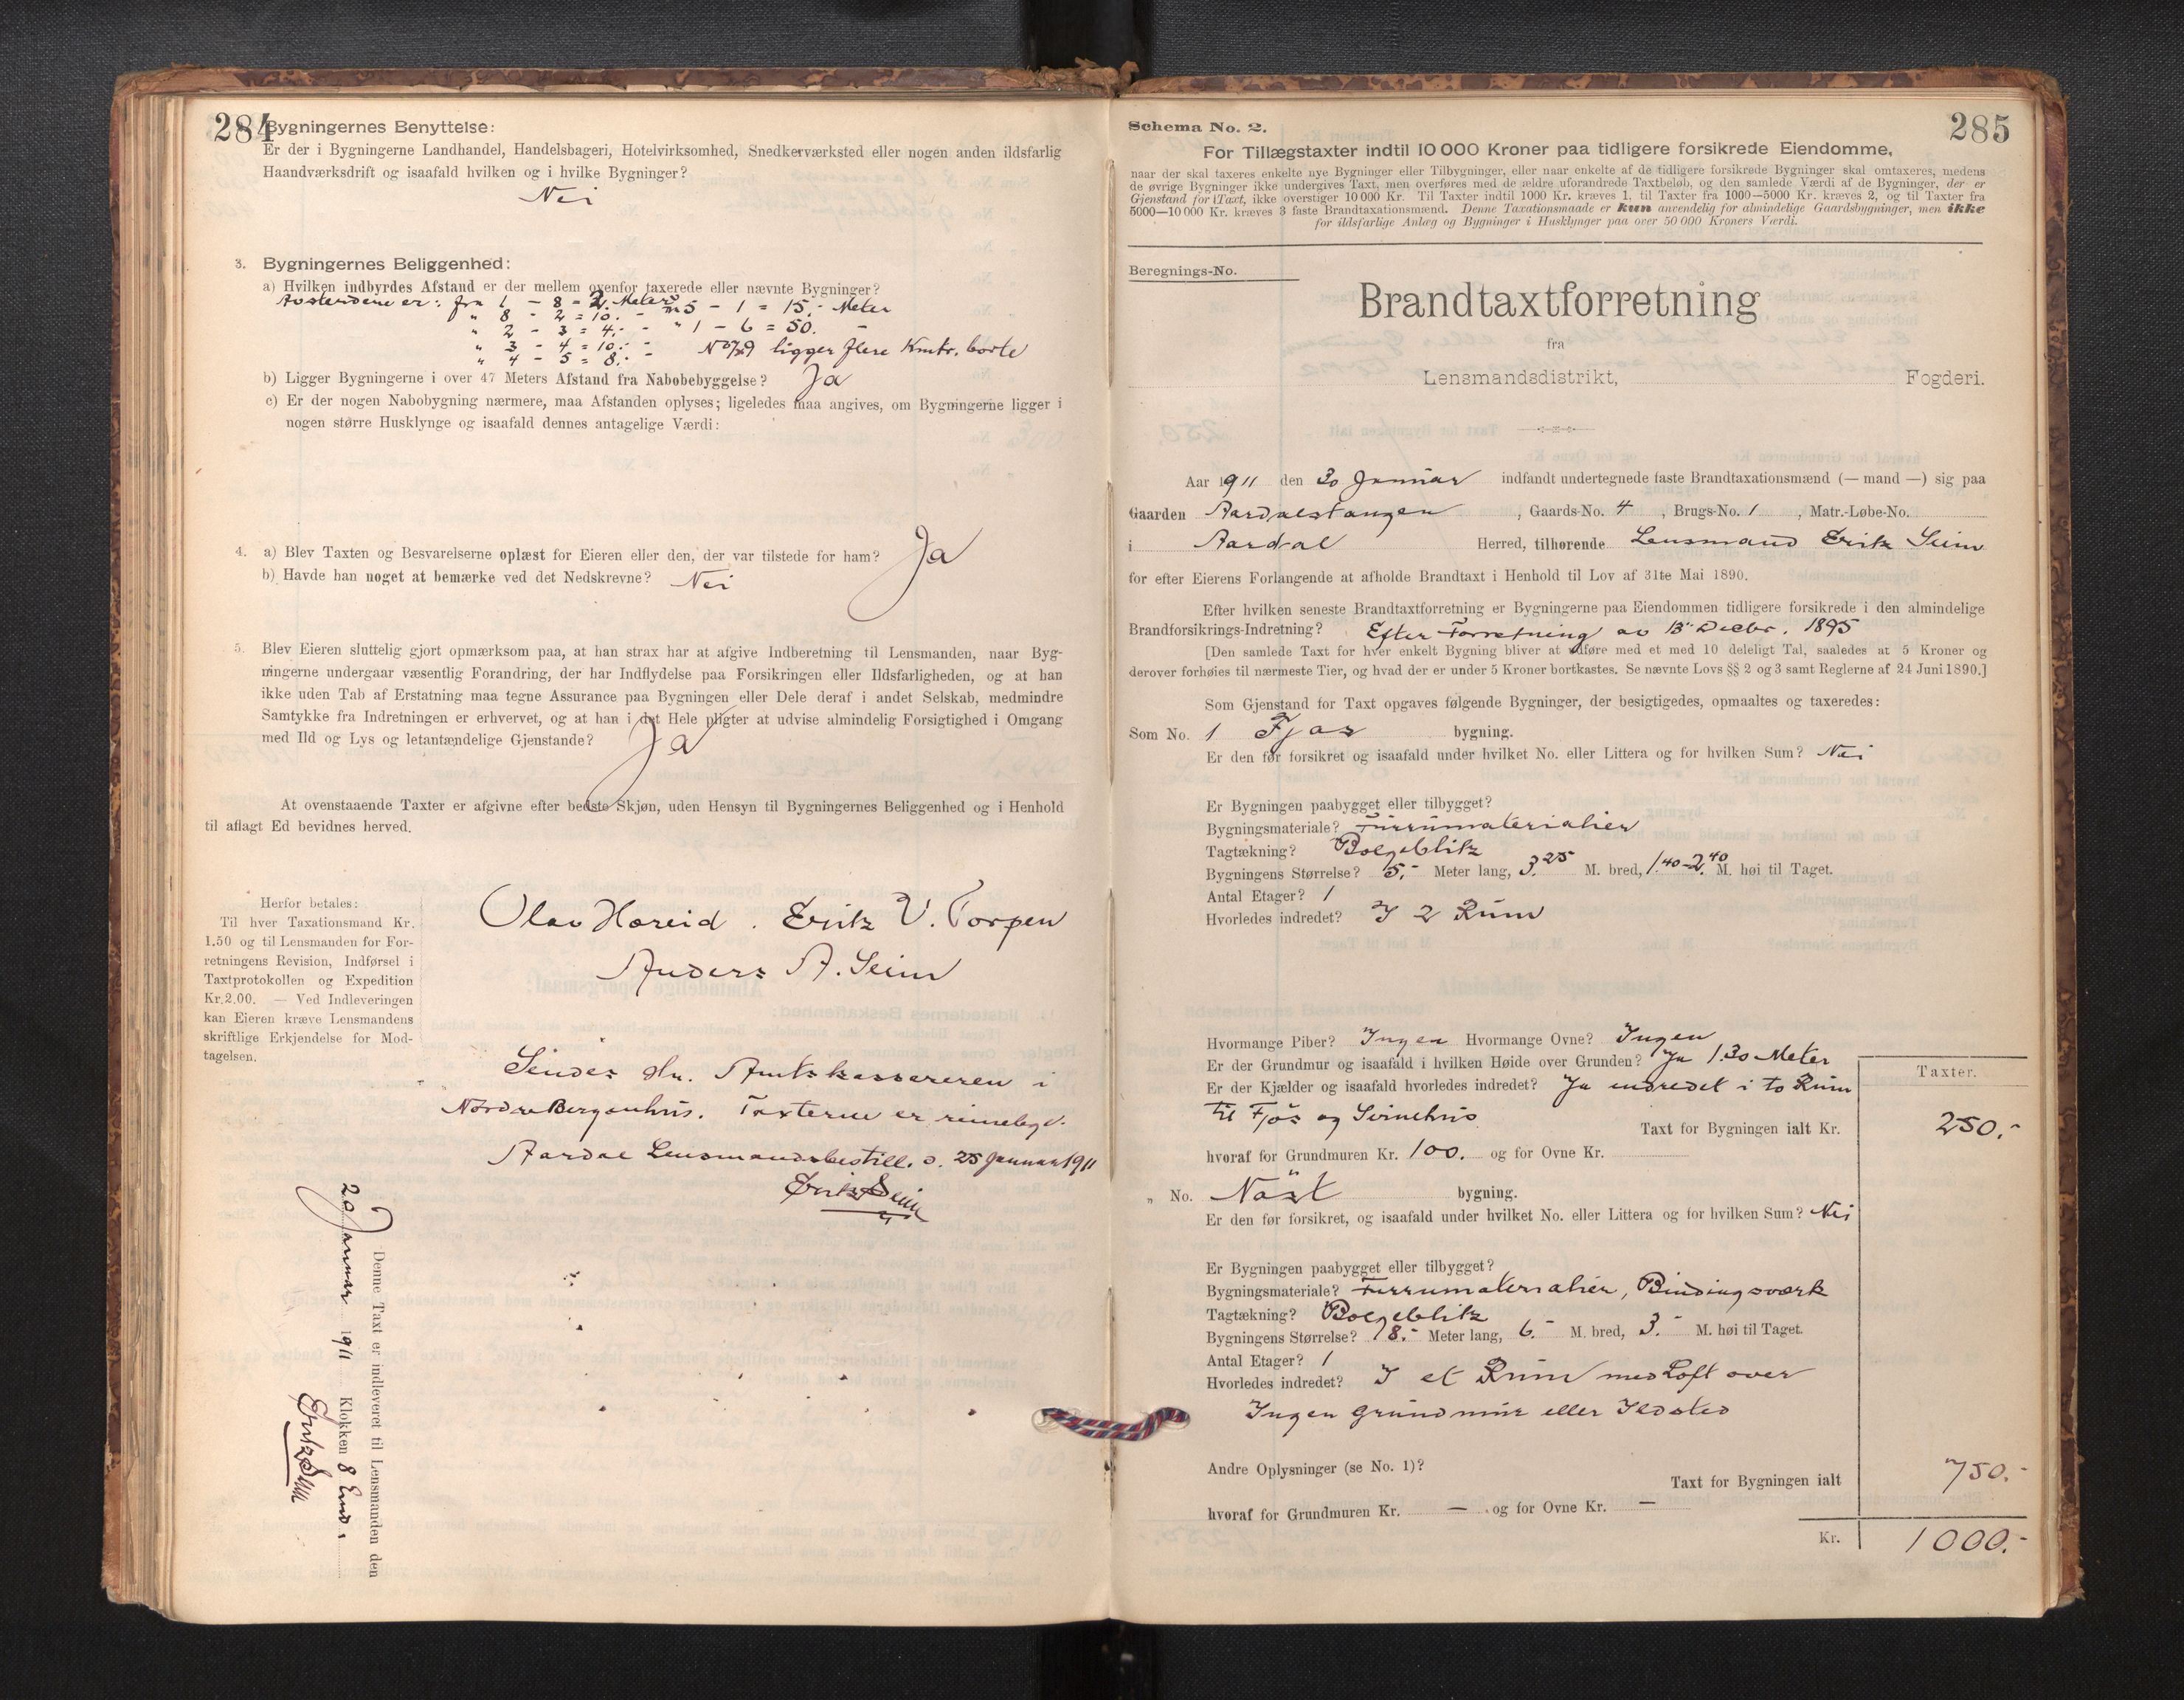 284
Bygningernes Benyttelse:
Er der i Bygningerne Landhandel, Handelsbageri, Hotelvirksomhed, Snedkerværksted eller nogen anden ildsfarlig
Haandværksdrift og isaafald hvilken og i hvilke Bygninger?
Nei
3. Bygningernes Beliggenhed:
a) Hvilken indbyrdes Afstand er der mellem ovenfor taxerede eller nævnte Bygninger?
Avstandene er: fra 1 - 8 = 2. Meter 5 - 1 = 15.- Meter
" 8 - 2 = 10. - " 1 - 6 = 50. -
" 2 - 3 = 4.- -
" 3 - 4 = 10.- - No 7 & 9 ligger flere Kmtr. borte
" 4 - 5 = 8.- -
b) Ligger Bygningerne i over 47 Meters Afstand fra Nabobebyggelse? Ja
c) Er der nogen Nabobygning nærmere, maa Afstanden oplyses; ligeledes maa angives, om Bygningerne ligger i
nogen større Husklynge og isaafald dennes antagelige Værdi:
4. a) Blev Taxten og Besvarelserne oplæst for Eieren eller den, der var tilstede for ham? Ja
b) Havde han noget at bemærke ved det Nedskrevne? Nei
5. Blev Eieren sluttelig gjort opmærksom paa, at han strax har at afgive Indberetning til Lensmanden, naar Byg-
ningerne undergaar væsentlig Forandring, der har Indflydelse paa Forsikringen eller Ildsfarligheden, og at han
ikke uden Tab af Erstatning maa tegne Assurance paa Bygningen eller Dele deraf i andet Selskab, medmindre
Samtykke fra Indretningen er erhvervet, og at han i det Hele pligter at udvise almindelig Forsigtighed i Omgang
med Ild og Lys og letantændelige Gjenstande? Ja
At ovenstaaende Taxter er afgivne efter bedste Skjøn, uden Hensyn til Bygningernes Beliggenhed og i Henhold
til aflagt Ed bevidnes herved.
Herfor betales:
Til hver Taxationsmand Kr.
1.50 og til Lensmanden for For-
retningens Revision, Indførsel i
Taxtprotokollen og Expedition
Kr. 2.00. — Ved Indleveringen
kan Eieren kræve Lensmandens
skriftlige Erkjendelse for Mod-
tagelsen.
Olav Hæreid . Erik V. Torpen
Anders A. Seim
Sendes Hr. Amtskassereren i
Nordre Bergenhus. Taxterne er rimelige.
Aardal Lensmandsbestill. d. 25 Januar 1911
Erik Seim
Denne Taxt er indleveret til Lensmanden den
20 Januar 1911 Klokken 8 Emd.
Erik Seim
285
Schema No. 2.
For Tillægstaxter indtil 10 000 Kroner paa tidligere forsikrede Eiendomme,
naar der skal taxeres enkelte nye Bygninger eller Tilbygninger, eller naar enkelte af de tidligere forsikrede Bygninger skal omtaxeres, medens
de øvrige Bygninger ikke undergives Taxt, men overføres med de ældre uforandrede Taxtbeløb, og den samlede Værdi af de Bygninger, der er
Gjenstand for Taxt, ikke overstiger 10 000 Kr. Til Taxter indtil 1000 Kr. kræves 1, til Taxter fra 1000—5000 Kr. kræves 2, og til Taxter fra
5000—10 000 Kr. kræves 3 faste Brandtaxationsmænd. Denne Taxationsmaade er kun anvendelig for almindelige Gaardsbygninger, men ikke
for ildsfarlige Anlæg og Bygninger i Husklynger paa over 50 000 Kroners Værdi.
Beregnings-No.
Brandtaxtforretning
fra
Lensmandsdistrikt, Fogderi.
Aar 1911 den 30 Januar indfandt undertegnede faste Brandtaxationsmænd (— mand —) sig paa
Gaarden Aardalstangen , Gaards-No. 4 , Brugs-No. 1 , Matr.-Løbe-No.
i Aardal Herred, tilhørende Lensmand Erik Seim
for efter Eierens Forlangende at afholde Brandtaxt i Henhold til Lov af 31te Mai 1890.
Efter hvilken seneste Brandtaxtforretning er Bygningerne paa Eiendommen tidligere forsikrede i den almindelige
Brandforsikrings-Indretning? Efter Forretning av 13" Decbr. 1895
[Den samlede Taxt for hver enkelt Bygning bliver at udføre med et med 10 deleligt Tal, saaledes at 5 Kroner og
derover forhøies til nærmeste Tier, og hvad der er under 5 Kroner bortkastes. Se nævnte Lovs §§ 2 og 3 samt Reglerne af 24 Juni 1890.]
Som Gjenstand for Taxt opgaves følgende Bygninger, der besigtigedes, opmaaltes og taxeredes:
Som No. 1 Fjøs bygning.
Er den før forsikret og isaafald under hvilket No. eller Littera og for hvilken Sum? Nei
Er Bygningen paabygget eller tilbygget?
Bygningsmateriale? Furrumaterialier
Tagtækning? Bølgeblik
Bygningens Størrelse? 5.- Meter lang, 3.25 M. bred, 1.40-2.40 M. høi til Taget.
Antal Etager? 1
Hvorledes indredet? I 2 Rum
Hvormange Piber? Ingen Hvormange Ovne? Ingen
Er der Grundmur og isaafald i hvilken Høide over Grunden? Ja 1.30 Meter
Er der Kjælder og isaafald hvorledes indredet? Ja indredet i to Rum
til Fjøs og Svinehus
Taxter.
Taxt for Bygningen ialt Kr. 250.-
hvoraf for Grundmuren Kr. 100. og for Ovne Kr.
" No. Nøst bygning.
Er den før forsikret, og isaafald under hvilket No. eller Littera og for hvilken Sum? Nei
Er Bygningen paabygget eller tilbygget?
Bygningsmateriale? Furrumaterialier, Bindingsværk
Tagtækning? Bølgeblik
Bygningens Størrelse? 8.- Meter lang, 6.- M. bred, 3.- M. høi til Taget.
Antal Etager? 1
Hvorledes indredet? I et Rum med Loft over
Ingen grundmur eller Ildsted
Andre Oplysninger (se No. 1)?
Taxt for Bygningen ialt 750.-
hvoraf for Grundmuren Kr. — og for Ovne Kr. —
Kr. 1000.-